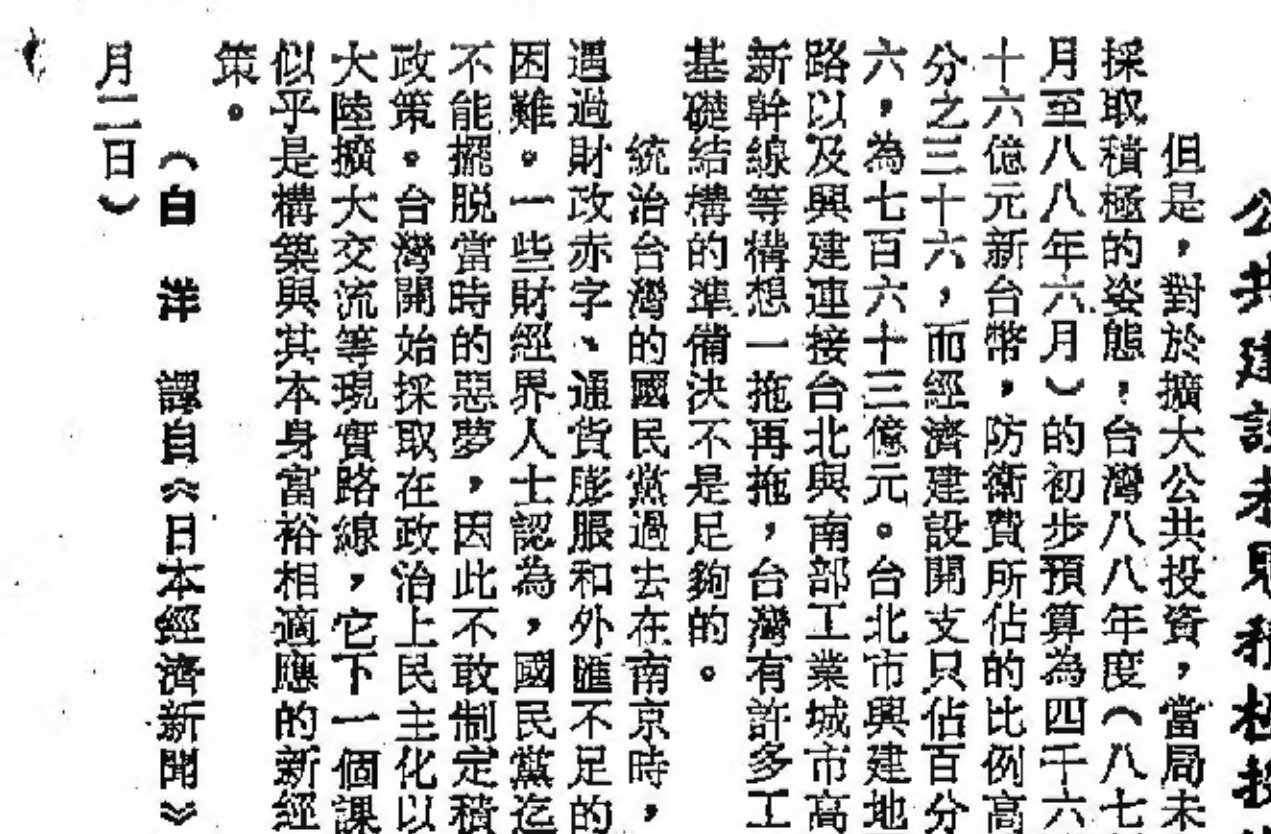 公共建設未見積極投
但是，對於擴大公共投資，當局未
採取積極的姿態，台灣八八年度（八七
月至八八年六月）的初步預算為四千六
十六億元新台幣，防衛費所佔的比例高
分之三十六，而經濟建設開支只佔百分
六，為七百六十三億元。台北市興建地
路以及興建連接台北與南部工業城市高
新幹線等構想一拖再拖，台灣有許多工
基礎結構的準備決不是足夠的。
統治台灣的國民黨過去在南京時，
遇過財政赤字、通貨膨脹和外匯不足的
困難。一些財經界人士認為，國民黨迄
不能擺脫當時的惡夢，因此不敢制定積
政策。台灣開始採取在政治上民主化以
大陸擴大交流等現實路線，它下一個課
似乎是構築與其本身富裕相適應的新經
策。
（白　洋　譯自《日本經濟新聞》
月二日）